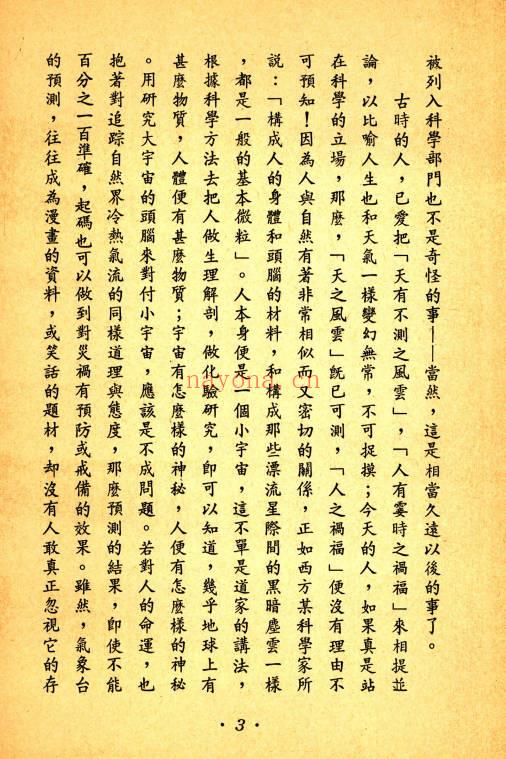 被列入科學部門也不是奇怪的事——當然，這是相當久遠以後的事了。
古時的人，已愛把「天有不測之風雲」，「人有霎時之禍福」來相提並
論，以比喻人生也和天氣一樣變幻無常，不可捉摸；今天的人，如果真是站
在科學的立場，那麼，「天之風雲」旣已可測，「人之禍福」便沒有理由不
可預知！因為人與自然有著非常相似而又密切的關係，正如西方某科學家所
說：「構成人的身體和頭腦的材料，和構成那些漂流星際間的黑暗塵雲一樣
，都是一般的基本微粒」。人本身便是一個小宇宙，這不單是道家的講法，
根據科學方法去把人做生理解剖，做化驗研究，即可以知道，幾乎地球上有
甚麼物質，人體便有甚麼物質；宇宙有怎麼樣的神秘，人便有怎麼樣的神秘
。用研究大宇宙的頭腦來對付小宇宙，應該是不成問題。若對人的命運，也
抱著對追踪自然界冷熱氣流的同樣道理與態度，那麼預測的結果，即使不能
百分之一百準確，起碼也可以做到對災禍有預防或戒備的效果。雖然，氣象台
的預測，往往成為漫畫的資料，或笑話的題材，却沒有人敢真正忽視它的存
nayona.cn
·3·